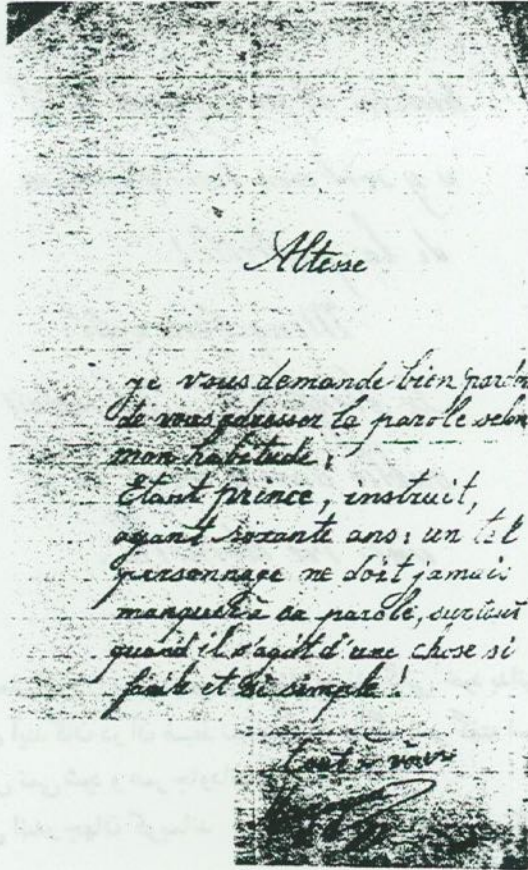 Altesse
je vous demande bien pardon
de vous adresser la parole selon
mon habitude;
Etant prince, instruit,
ayant soxante ans; un tel
personnage ne doit jamais
manquer à sa parole, surtout
quand il s'agit d'une chose si
facile et si simple!
tout à vous